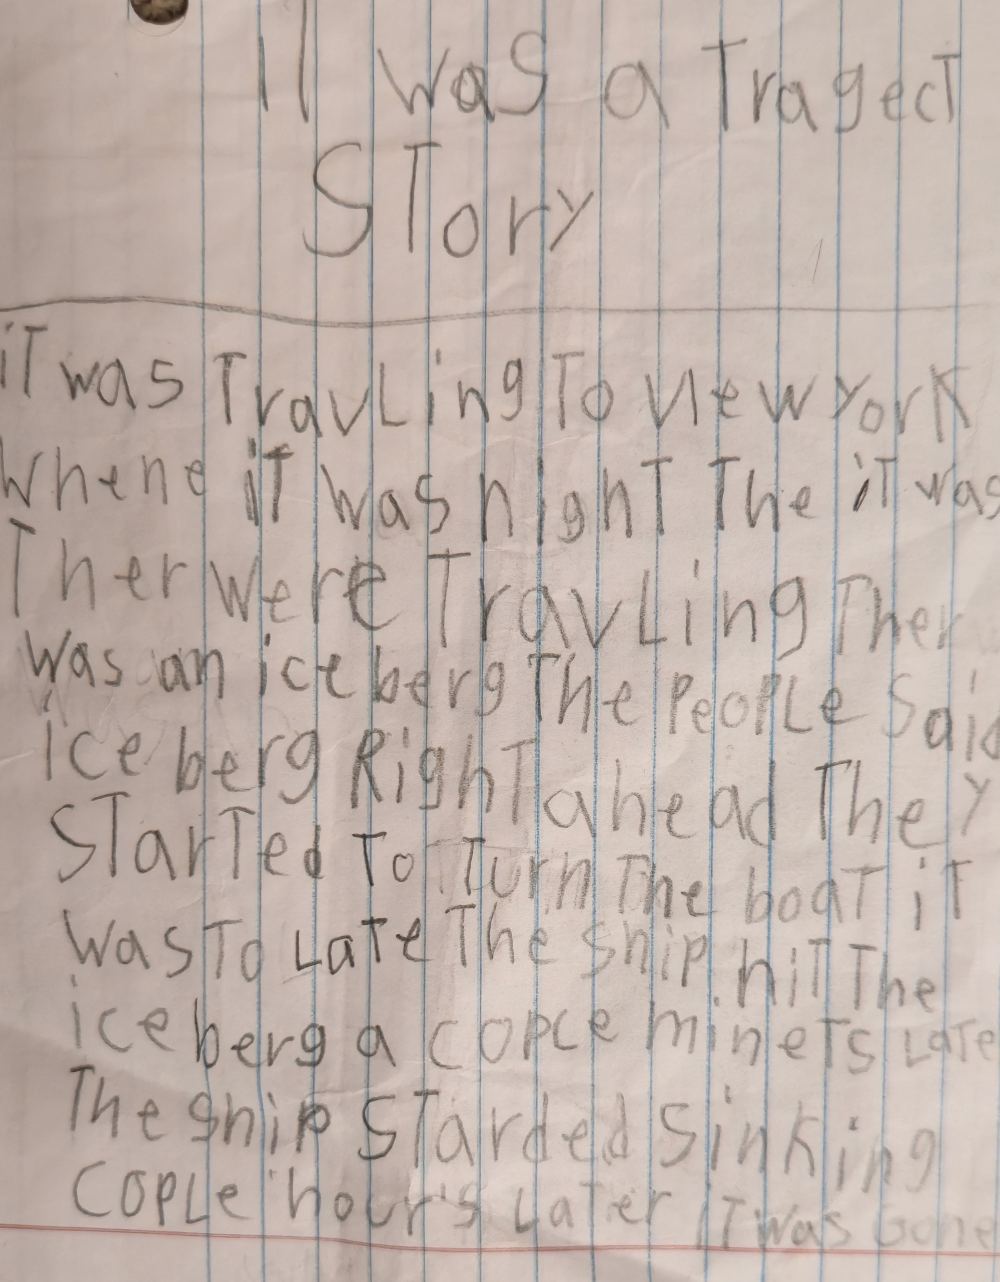 it was a Tragect
STory
iT was TravLing To New york
Whene iT was night The iT was
Ther were TravLing Ther
was an ice berg The PeoPLe Said
ice berg Right ahead They
STarTed To Turn The boaT iT
was To LaTe The Ship hiT The
ice berg a copLe mineTs LaTe
The Ship STarded Sinking
COPLe hour's LaTer iT was Gone